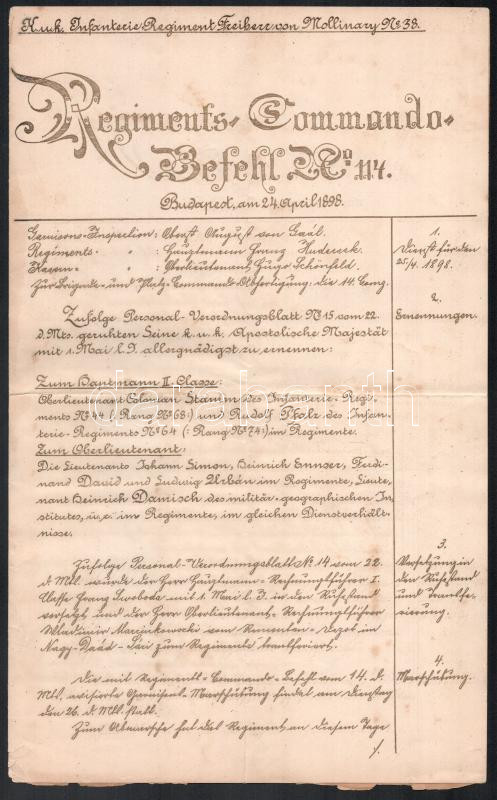 K.u.k. Infanterie-Regiment Freiherr von Mollinary No 38.
Regiments-Commando-
Befehl No 114.
Budapest, am 24. April 1898.
Garnisons-Inspection: Oberst August von Gaál.
Regiments- " : Hauptmann Franz
Kasern- " : Oberlieutenant Hugo Schönfeld.
Zur Brigade- und Platz-Commando-Abfertigung die 14. Comp.
1.
Dienst für den
25/4. 1898.
Zufolge Personal-Verordnungsblatt No 15 vom 22.
d. Mts. geruhten Seine k. u. k. Apostolische Majestät
mit 1. Mai l. J. allergnädigst zu ernennen:
2.
Ernennungen.
Zum Hauptmann II. Classe:
Oberlieutenant Coloman Stamm des Infanterie-Regi-
ments No 44 (: Rang No 68:) und Rudolf Pfalz des Infan-
terie-Regiments No 64 (: Rang No 74:) im Regimente.
Zum Oberlieutenant:
Die Lieutenants Johann Simon, Heinrich Ennser, Ferdi-
nand David und Ludwig Urbán im Regimente, Lieute-
nant Heinrich Danisch des militär-geographischen In-
stitutes, ü. c. im Regimente, im gleichen Dienstverhält-
nisse.
Zufolge Personal-Verordnungsblatt No 14 vom 22.
d. Mts. wurde der Herr Hauptmann-Rechnungsführer I.
Classe Franz Swoboda mit 1. Mai l. J. in den Ruhestand
versetzt und der Herr Oberlieutenant-Rechnungsführer
Wladimir Marjankowski vom Remonten-Depot in
Nagy-Daád- zum Regimente transferiert.
3.
Versetzung in
den Ruhestand
und Transfe-
rierung.
Die mit Regiments-Commando-Befehl vom 14. d.
Mts. avisierte Garnisons-Marschübung findet am Dienstag
den 26. d. Mts. statt.
Zum Abmarsche hat das Regiment an diesem Tage
4.
Marschübung.
./.
darabanth